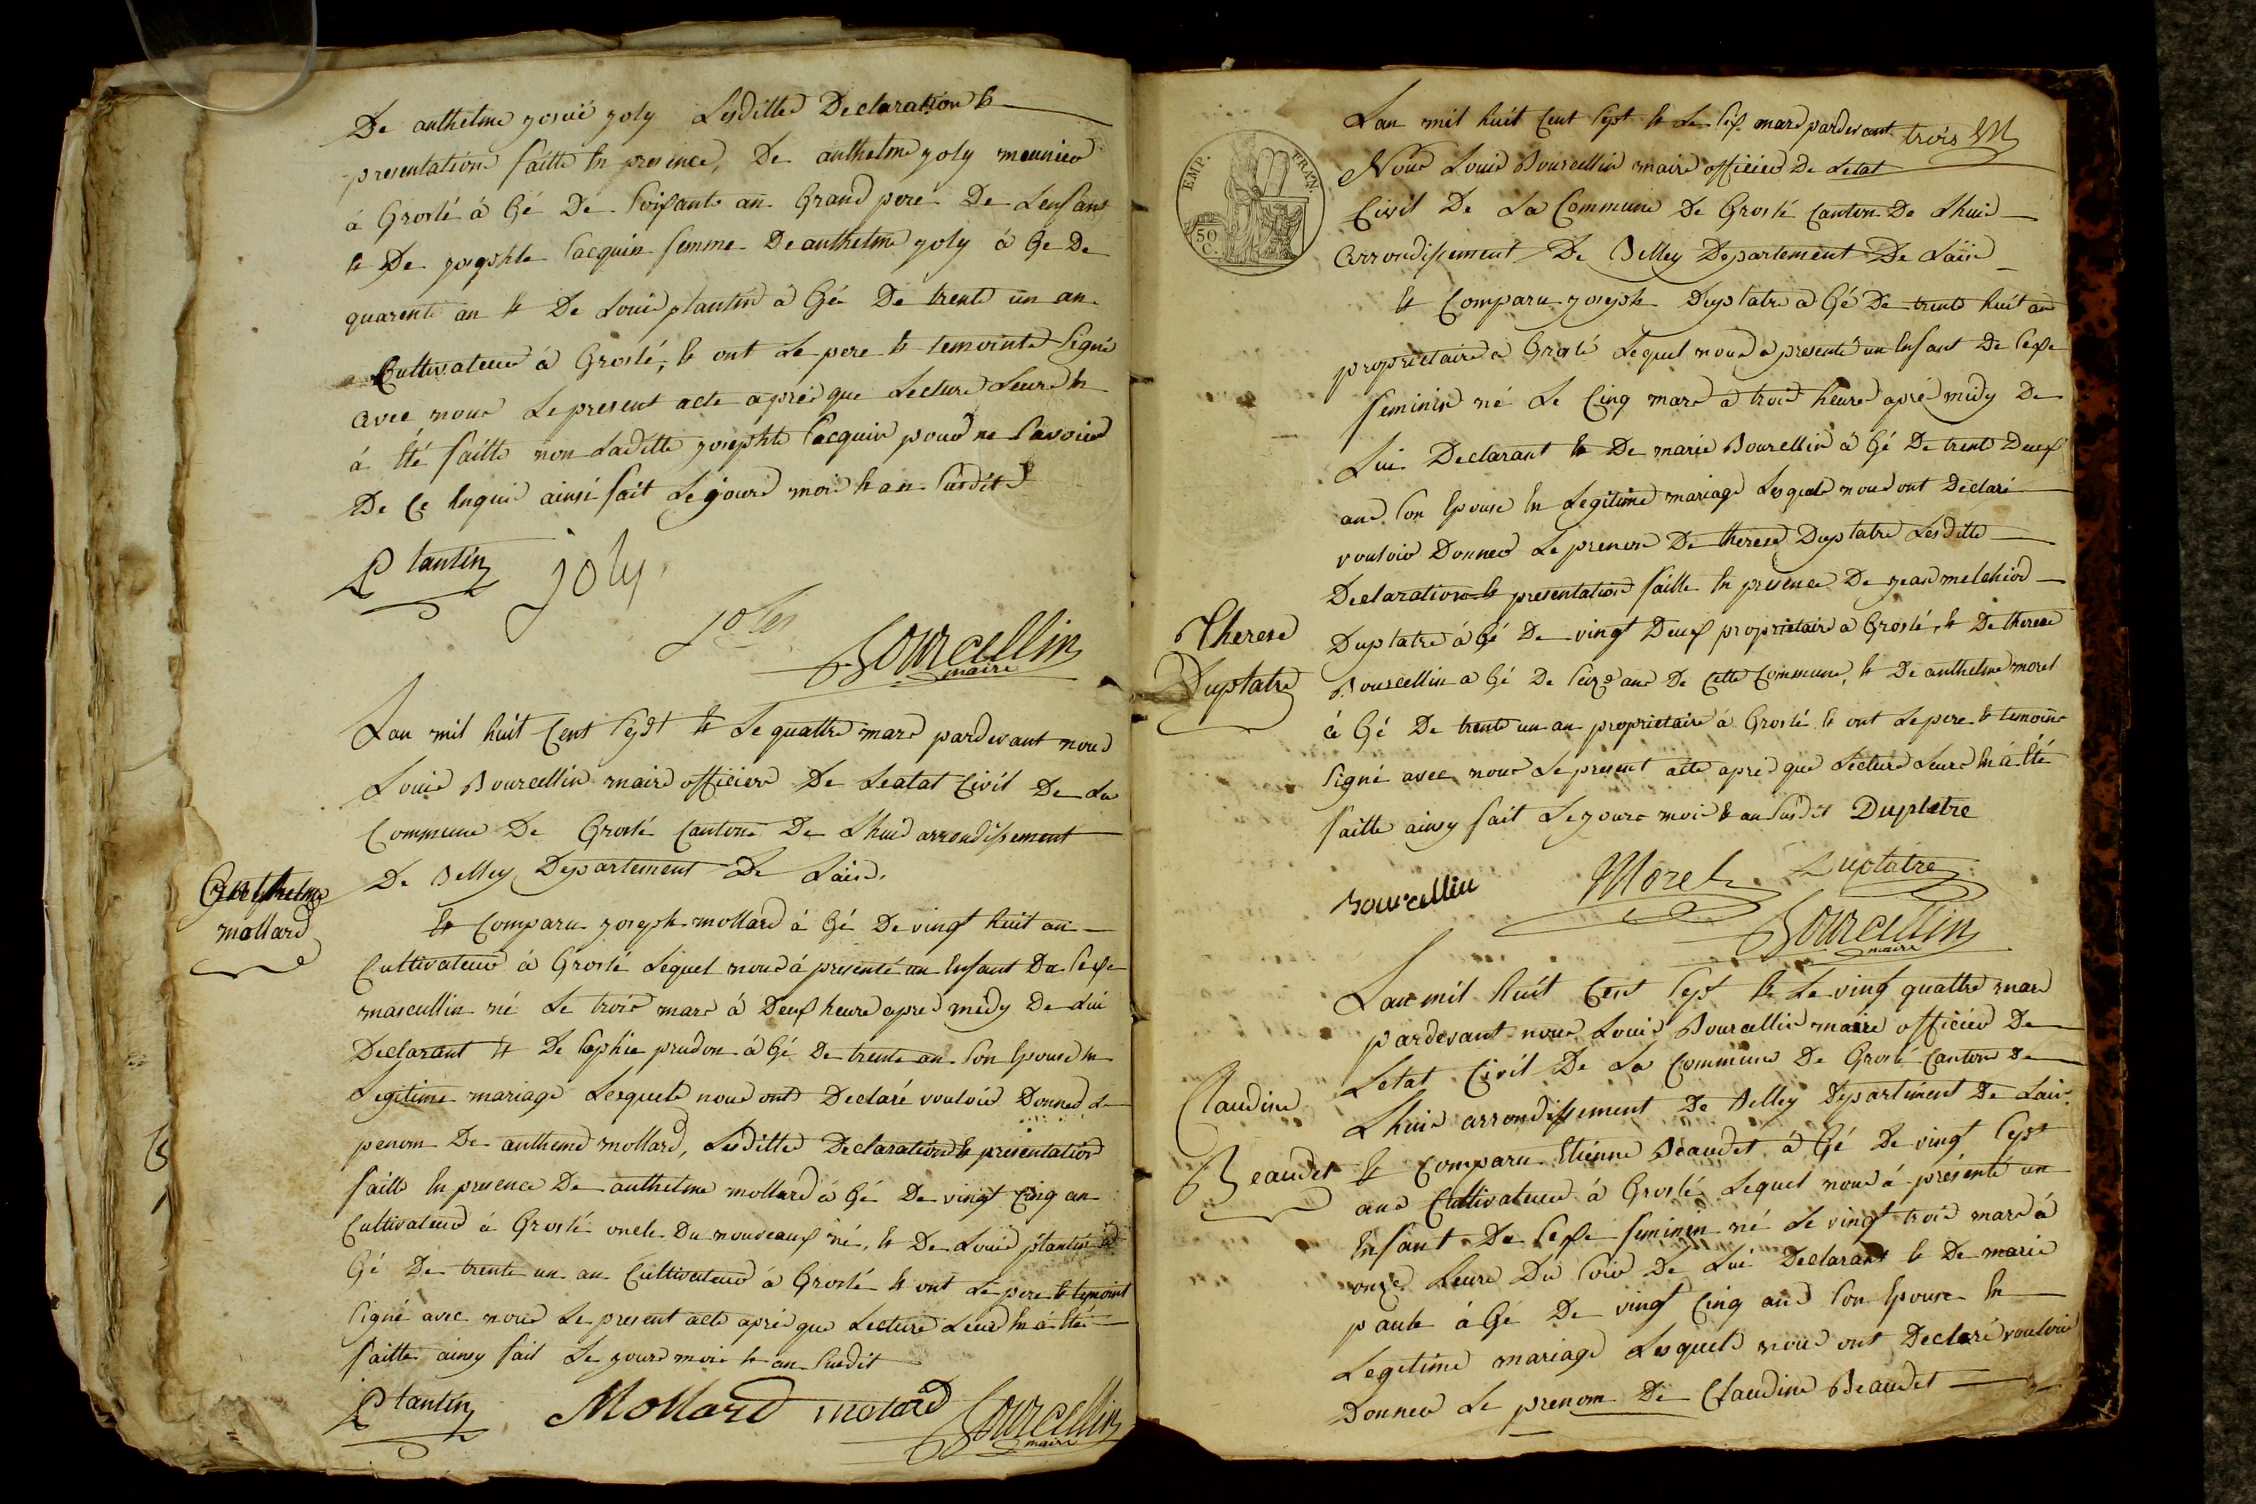 De anthelme josué joly Lesditte Declaration et
presentation faitte En presence, De anthelme joly meunier
á Groslé á Gé De Soixante an Grand pere De Lenfant
et De josephte Jacquin femme De anthelme joly á Ge De
quarente an et De Louis plantin á Gé De trente un an
Cultivateur á Groslé, et ont Le pere et temointe Signé
avec nous Le present acte aprés que Lecture Leurs En
á Eté faitte non Laditte josephte Jacquin pour ne Savoir
De Ce Enquis ainsi fait Le jours mois et an Susdit
Plantin joly
joly
Bourcellin
maire
Lan mil huit Cent Sept et Le quattre mars pardevant nous
Louis Bourcellin maire officier De Leatat Civil De La
Commune De Groslé Canton De Lhuis arrondissement
De Belley Departement De Lain.
Anthelme
mollard
Et Comparu joseph mollard á Gé De vingt huit an
Cultivateur á Groslé Lequel nous á presenté un Enfant Du Sexe
mascullin né Le trois mars á Deux heure apres midy De Lui
Declarant et De Sophie prudon á Gé De trente an Son Epouse En
Legitime mariage Lesquels nous ont Declaré vouloir Donner Le
penom De antheme mollard, Lesditte Declaration et presentation
faitte En presence De anthelme mollard á Gé De vingt Cinq an
Cultivateur á Groslé oncle Du nouveaux né, et De Louis plantin á
Gé De trente un an Cultivateur á Groslé et ont Le pere et temoint
Signé avec nous Le present acte aprés que Lecture Leurs En á Eté
faitte ainsy fait Le jours mois et an Susdit
Plantin Mollard molard Bourcellin
maire
trois
EMP. FRAN.
50
C.
Lan mil huit Cent Sept et Le Six mars pardevant
Nous Louis Bourcellin maire officier De Letat
Civil De La Commune De Groslé Canton De Lhuis
Arrondissement De Belley Departement De Lain
Et Comparu joseph Duplatre á Gé De trente huit ans
proprietaire á Groslé Lequel nous á presenté un Enfant De Sexe
feminin né Le Cinq mars á trois heures aprés midy De
Lui Declarant et De marie Bourcellin á Gé De trente Deux
ans Son Epouse En Legitime mariage Lesquels nous ont Declaré
vouloir Donner Le prenom De therese Duplatre Lesditte
Declaration et presentation faitte En presence De jean melchior
Therese
Duplatre
Duplatre á Gé De vingt Deux proprietaire á Groslé, et De therese
Bourcellin a Gé De Seize ans De Cette Commune, et De anthelme morel
á Gé De trente un an proprietaire á Groslé et ont Le pere et temoins
Signé avec nous Le present acte aprés que Lecture Leurs En á Eté
faitte ainsy fait Le jours mois et an Susdit Duplatre
Bourcellin Morel Duplatre
Bourcellin
maire
Lan mil huit Cent Sept et Le vingt quattre mars
pardevant nous Louis Bourcellin maire officier De
Letat Civil De La Commune De Groslé Canton De
Lhuis arrondissement De Belley Departement De Lain
Claudine
Beaudet
Et Comparu Etienne Beaudet á Gé De vingt Sept
ans Cultivateur á Groslé Lequel nous á présenté un
Enfant De Sexe feminin né Le vingt trois mars á
onze heure Du Soir De Lui Declarant et De marie
paule á Gé De vingt Cinq ans Son Epouse En
Legetime mariage Lesquels nous ont Declaré vouloir
Donner Le prenom De Claudine Beaudet